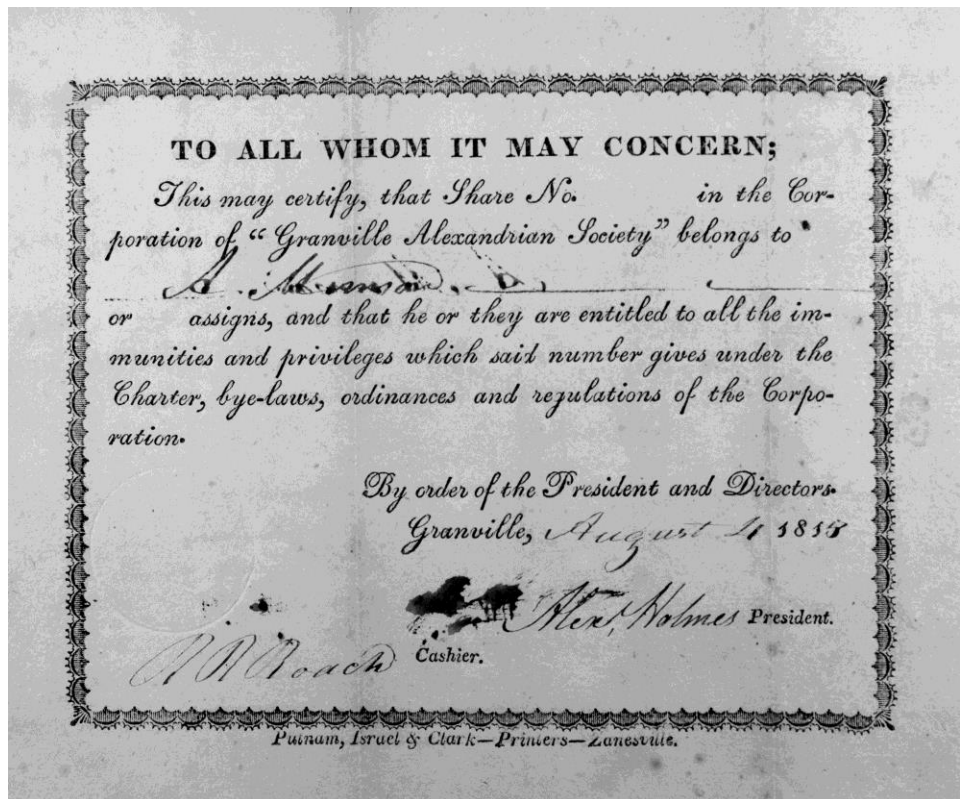 TO ALL WHOM IT MAY CONCERN;
This may certify, that Share No. in the Cor-
poration of “Granville Alexandrian Society” belongs to
A.
or assigns, and that he or they are entitled to all the im-
munities and privileges which said number gives under the
Charter, bye-laws, ordinances and regulations of the Corpo-
ration.
By order of the President and Directors.
Granville, August 4 1815
Alexr. Holmes President.
R R Roach Cashier.
Putnam, Israel & Clark—Printers—Zanesville.